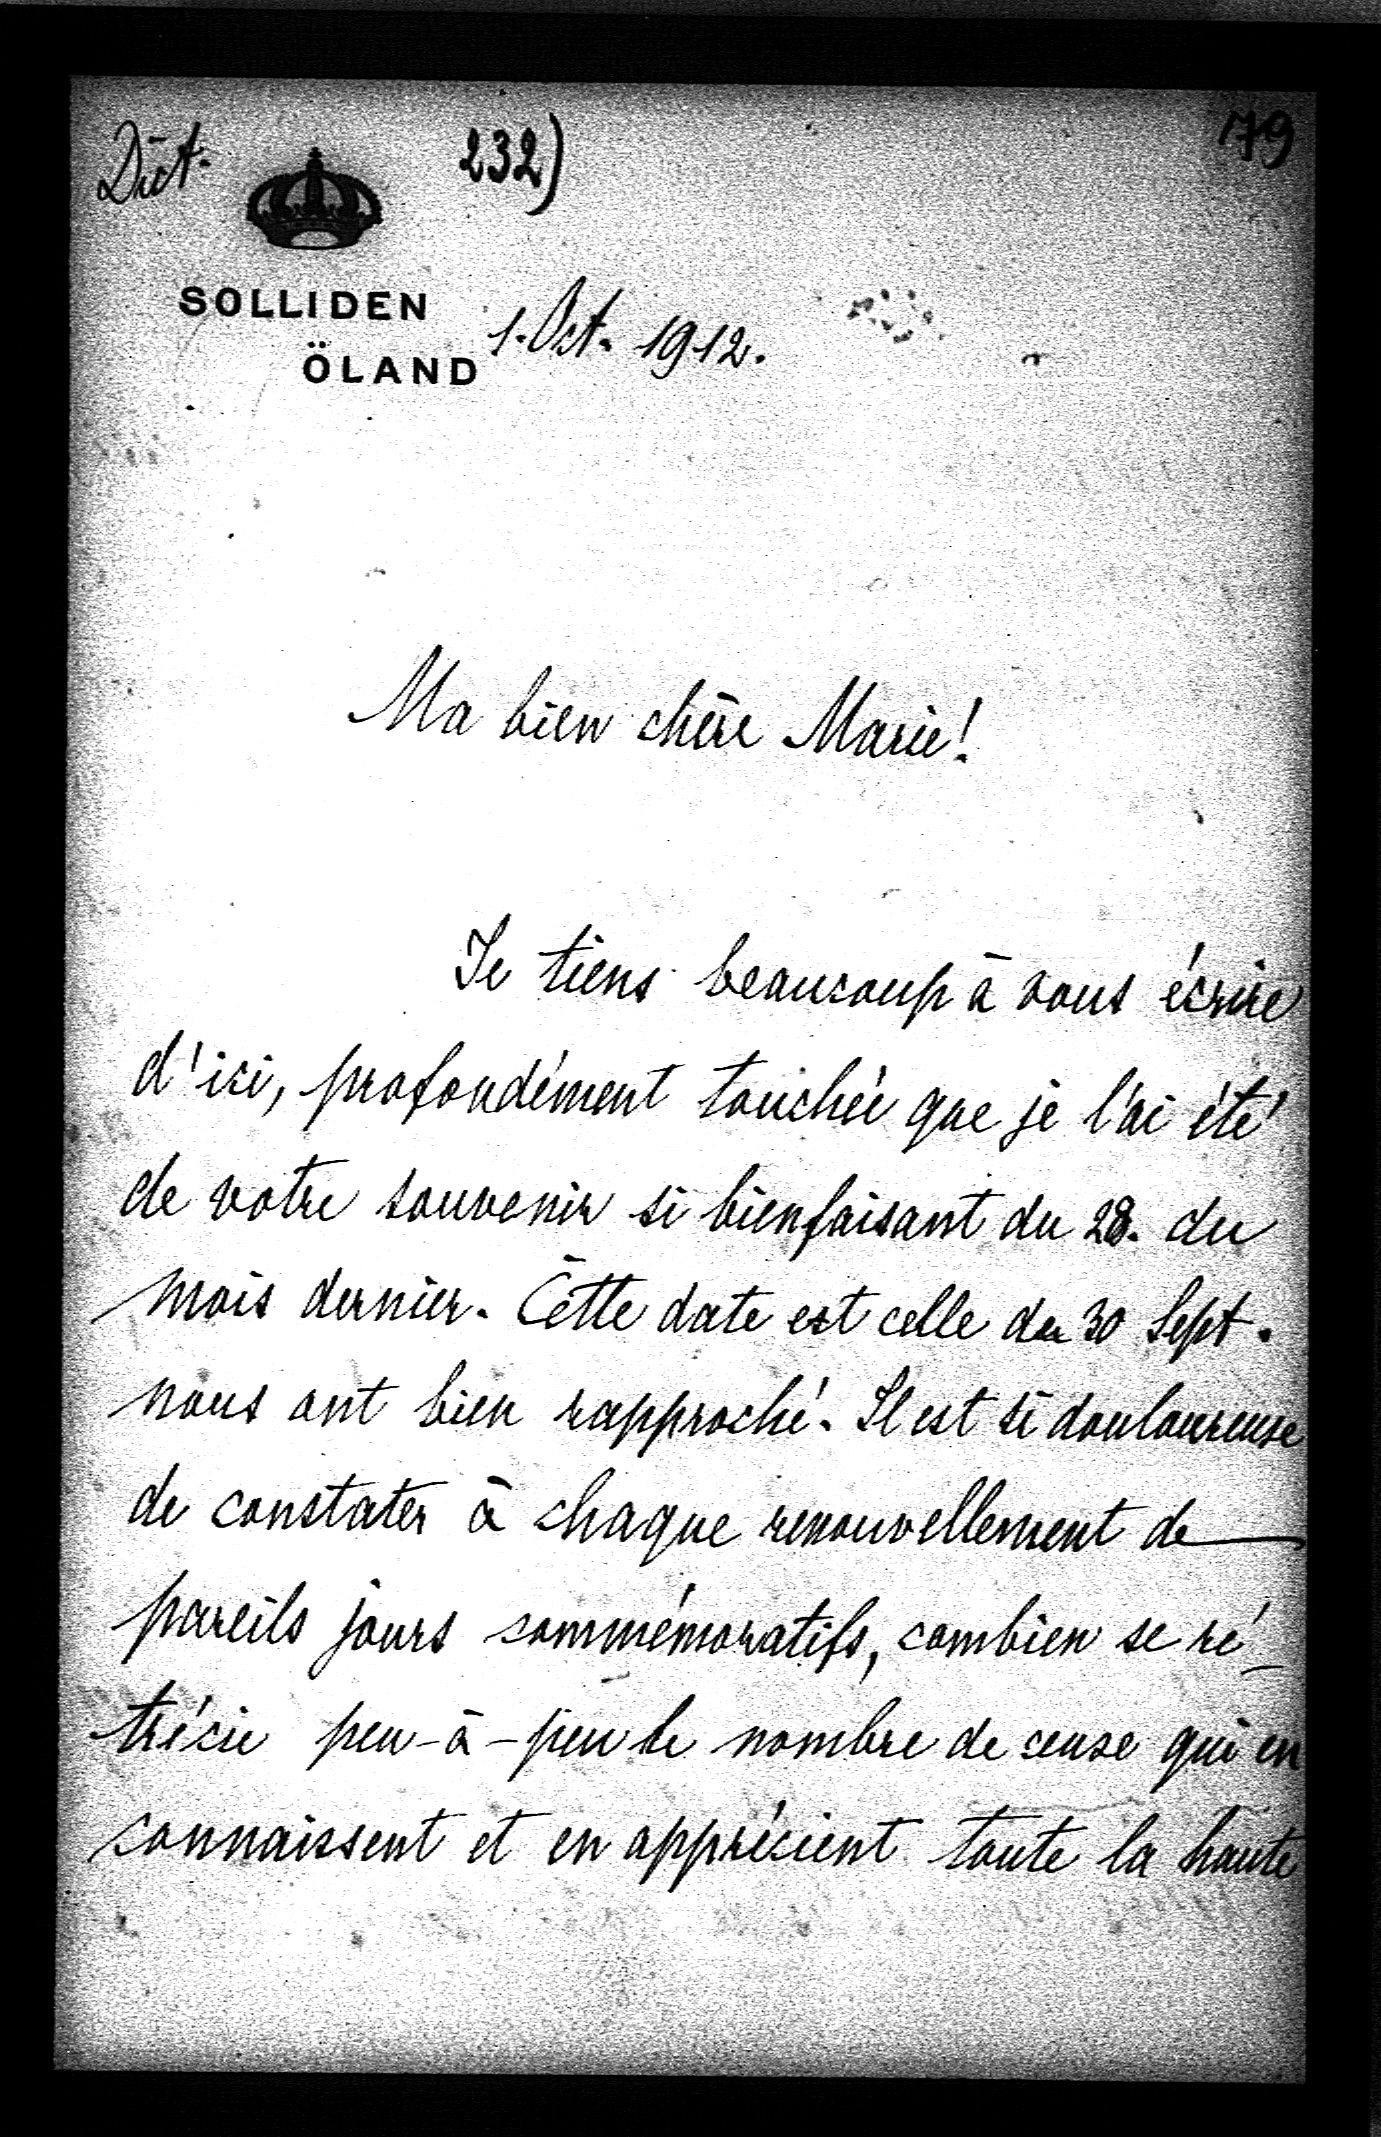 Dict. 232) 79
SOLLIDEN
ÖLAND 1. Oct. 1912.
Ma bien chère Marie!
Je tiens beaucoup à vous écrire
d'ici, profondément touchée que je l'ai été
de votre souvenir si bienfaisant du 28. du
mois dernier. Cètte date est celle du 30 Sept.
nous ont bien rapproché. Il est si douloureuse
de constater à chaque renouvellement de
pareils jours commémoratifs, combien se ré-
trécie peu-à-peu le nombre de ceuse qui en
connaissent et en apprécient toute la haute